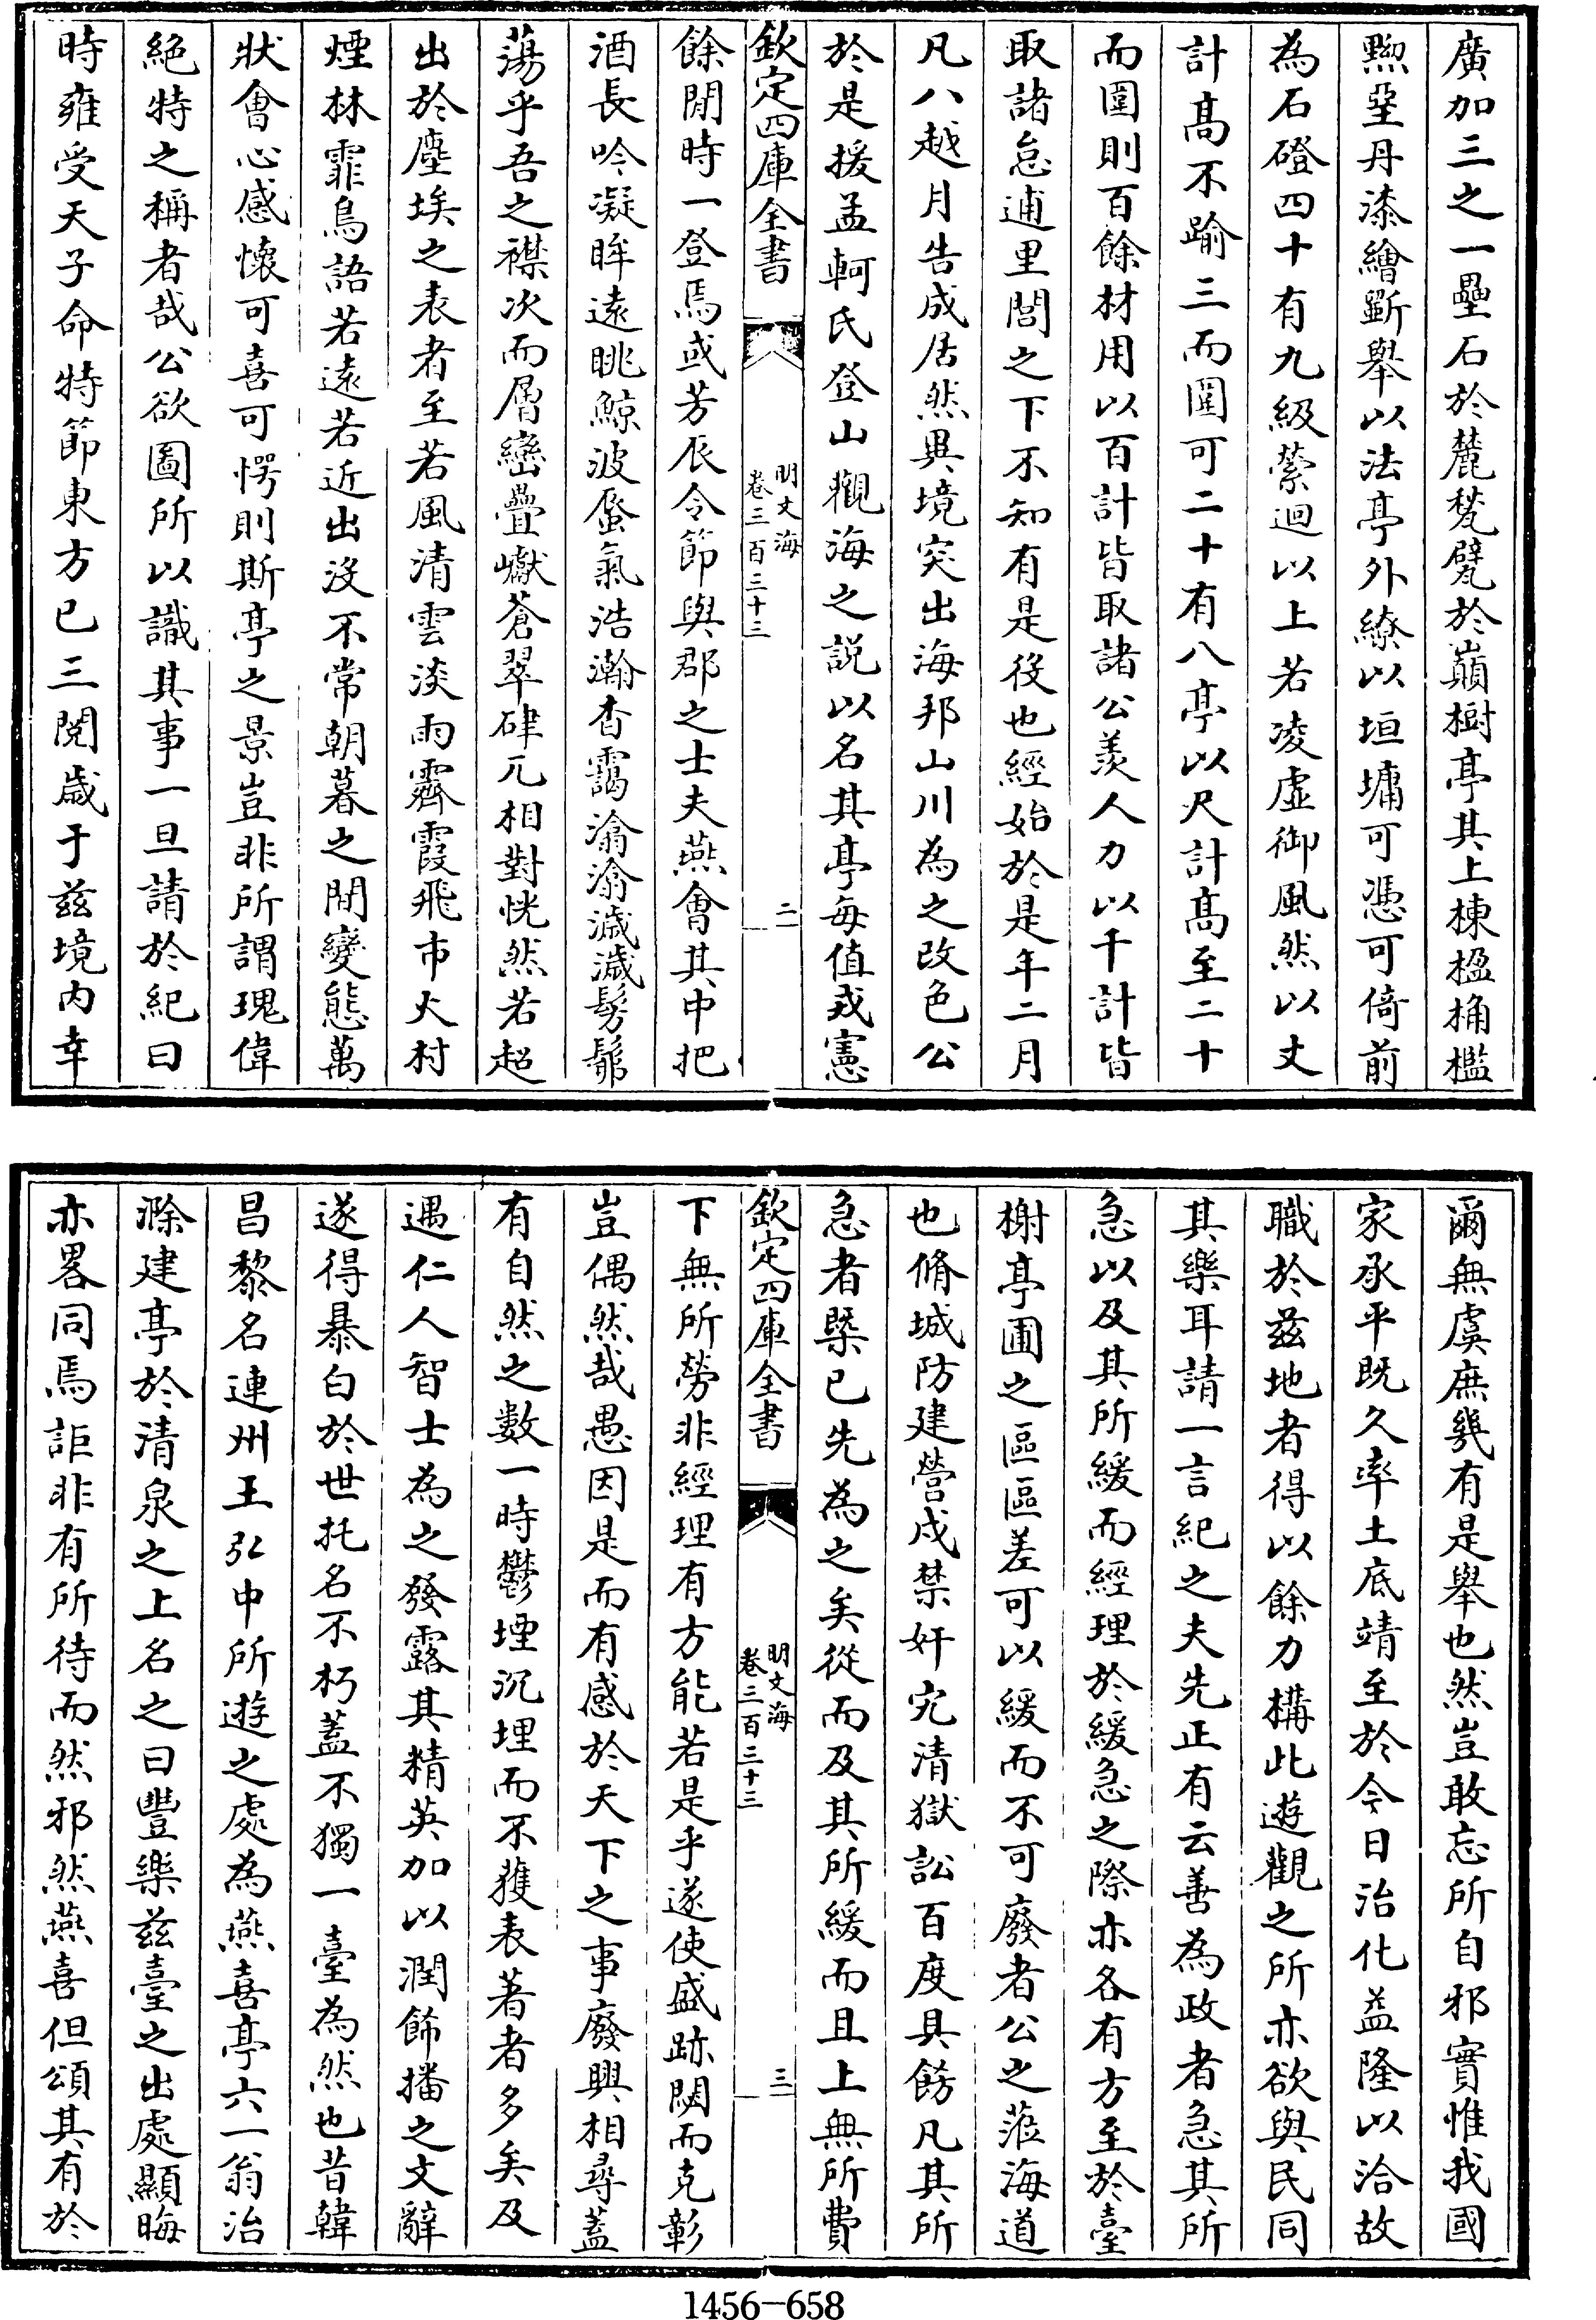 廣加三之一壘石於麓甃甓於巔樹亭其上棟楹桷檻
黝堊丹漆繪斲舉以法亭外繚以垣墉可憑可倚前
為石磴四十有九級縈迴以上若凌虛御風然以丈
計高不踰三而圍可二十有八亭以尺計高至二十
而圍則百餘材用以百計皆取諸公羨人力以千計皆
取諸怠逋里閭之下不知有是役也經始於是年二月
凡八越月告成居然異境突出海邦山川為之改色公
於是援孟軻氏登山觀海之説以名其亭每值戎憲
欽定四庫全書
明文海
卷三百三十三
二
餘閒時一登焉或芳辰令節與郡之士夫燕會其中把
酒長吟凝眸遠眺鯨波蜃氣浩瀚杳靄滃滃濊濊髣髴
蕩乎吾之襟次而層巒疊巘蒼翠硉兀相對恍然若超
出於塵埃之表者至若風清雲淡雨霽霞飛市火村
煙林霏鳥語若遠若近出沒不常朝暮之間變態萬
狀會心感懷可喜可愕則斯亭之景豈非所謂瑰偉
絕特之稱者哉公欲圖所以識其事一旦請於紀曰
時雍受天子命特節東方已三閱歲于兹境内幸
爾無虞庶幾有是舉也然豈敢忘所自邪實惟我國
家承平既久率土底靖至於今日治化益隆以洽故
職於兹地者得以餘力構此遊觀之所亦欲與民同
其樂耳請一言紀之夫先正有云善為政者急其所
急以及其所緩而經理於緩急之際亦各有方至於臺
榭亭圃之區區差可以緩而不可廢者公之蒞海道
也脩城防建營戍禁奸宄清獄訟百度具飭凡其所
急者槩已先為之矣從而及其所緩而且上無所費
欽定四庫全書
明文海
卷三百三十三
三
下無所勞非經理有方能若是乎遂使盛跡閟而克彰
豈偶然哉愚因是而有感於天下之事廢興相尋蓋
有自然之數一時鬱堙沉埋而不獲表著者多矣及
遇仁人智士為之發露其精英加以潤飾播之文辭
遂得暴白於世托名不朽蓋不獨一臺為然也昔韓
昌黎名連州王弘中所遊之處為燕喜亭六一翁治
滁建亭於清泉之上名之曰豐樂兹臺之出處顯晦
亦畧同焉詎非有所待而然邪然燕喜但頌其有於
1456-658